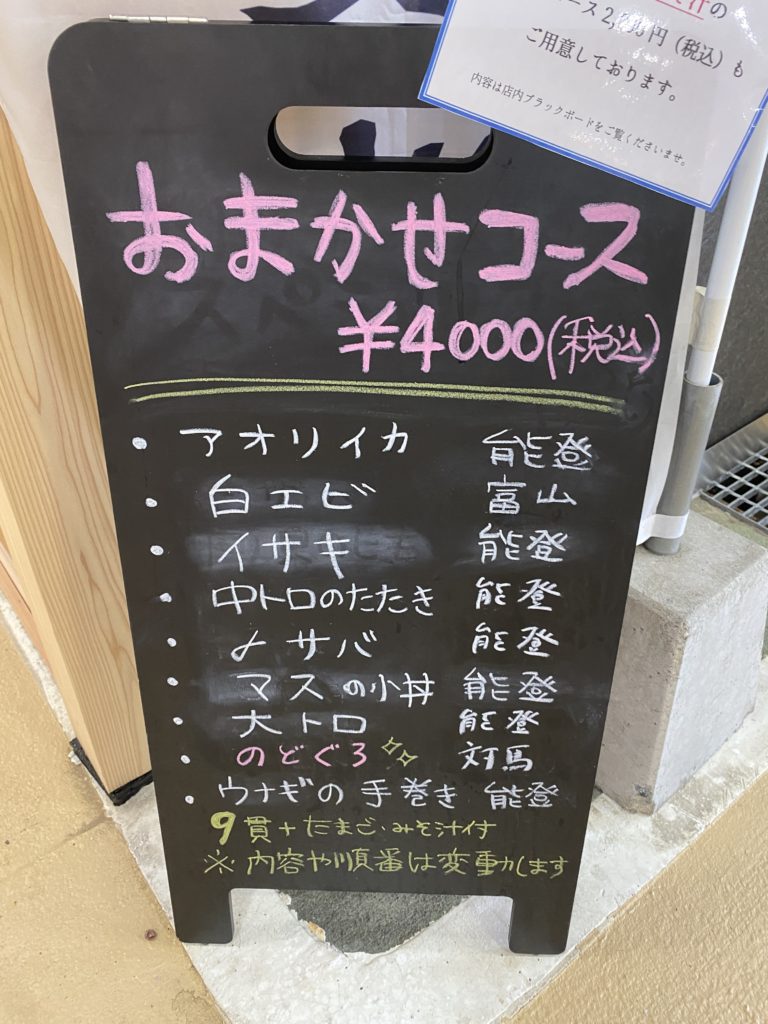 の
ース2, 円（税込）も
ご用意しております。
内容は店内ブラックボードをご覧くださいませ。
おまかせコース
¥4000(税込)
・アオリイカ 能登
・白エビ 富山
・イサキ 能登
・中トロのたたき 能登
・〆サバ 能登
・マスの小丼 能登
・大トロ 能登
・のどぐろ 対馬
・ウナギの手巻き 能登
9貫+たまご・みそ汁付
※内容や順番は変動します